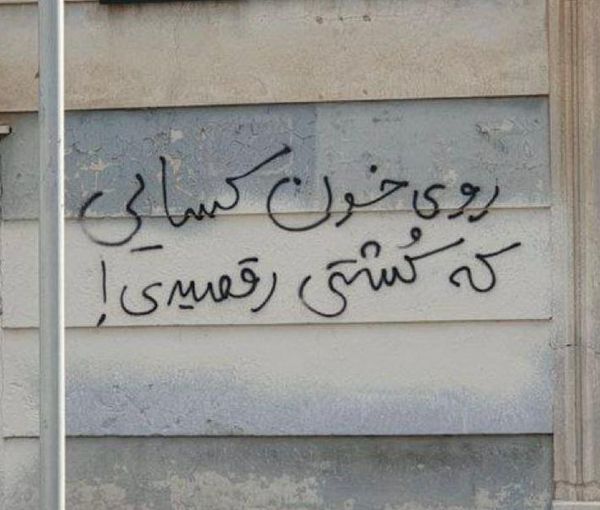 روی خون کسایی
که کُشتی رقصیدی!